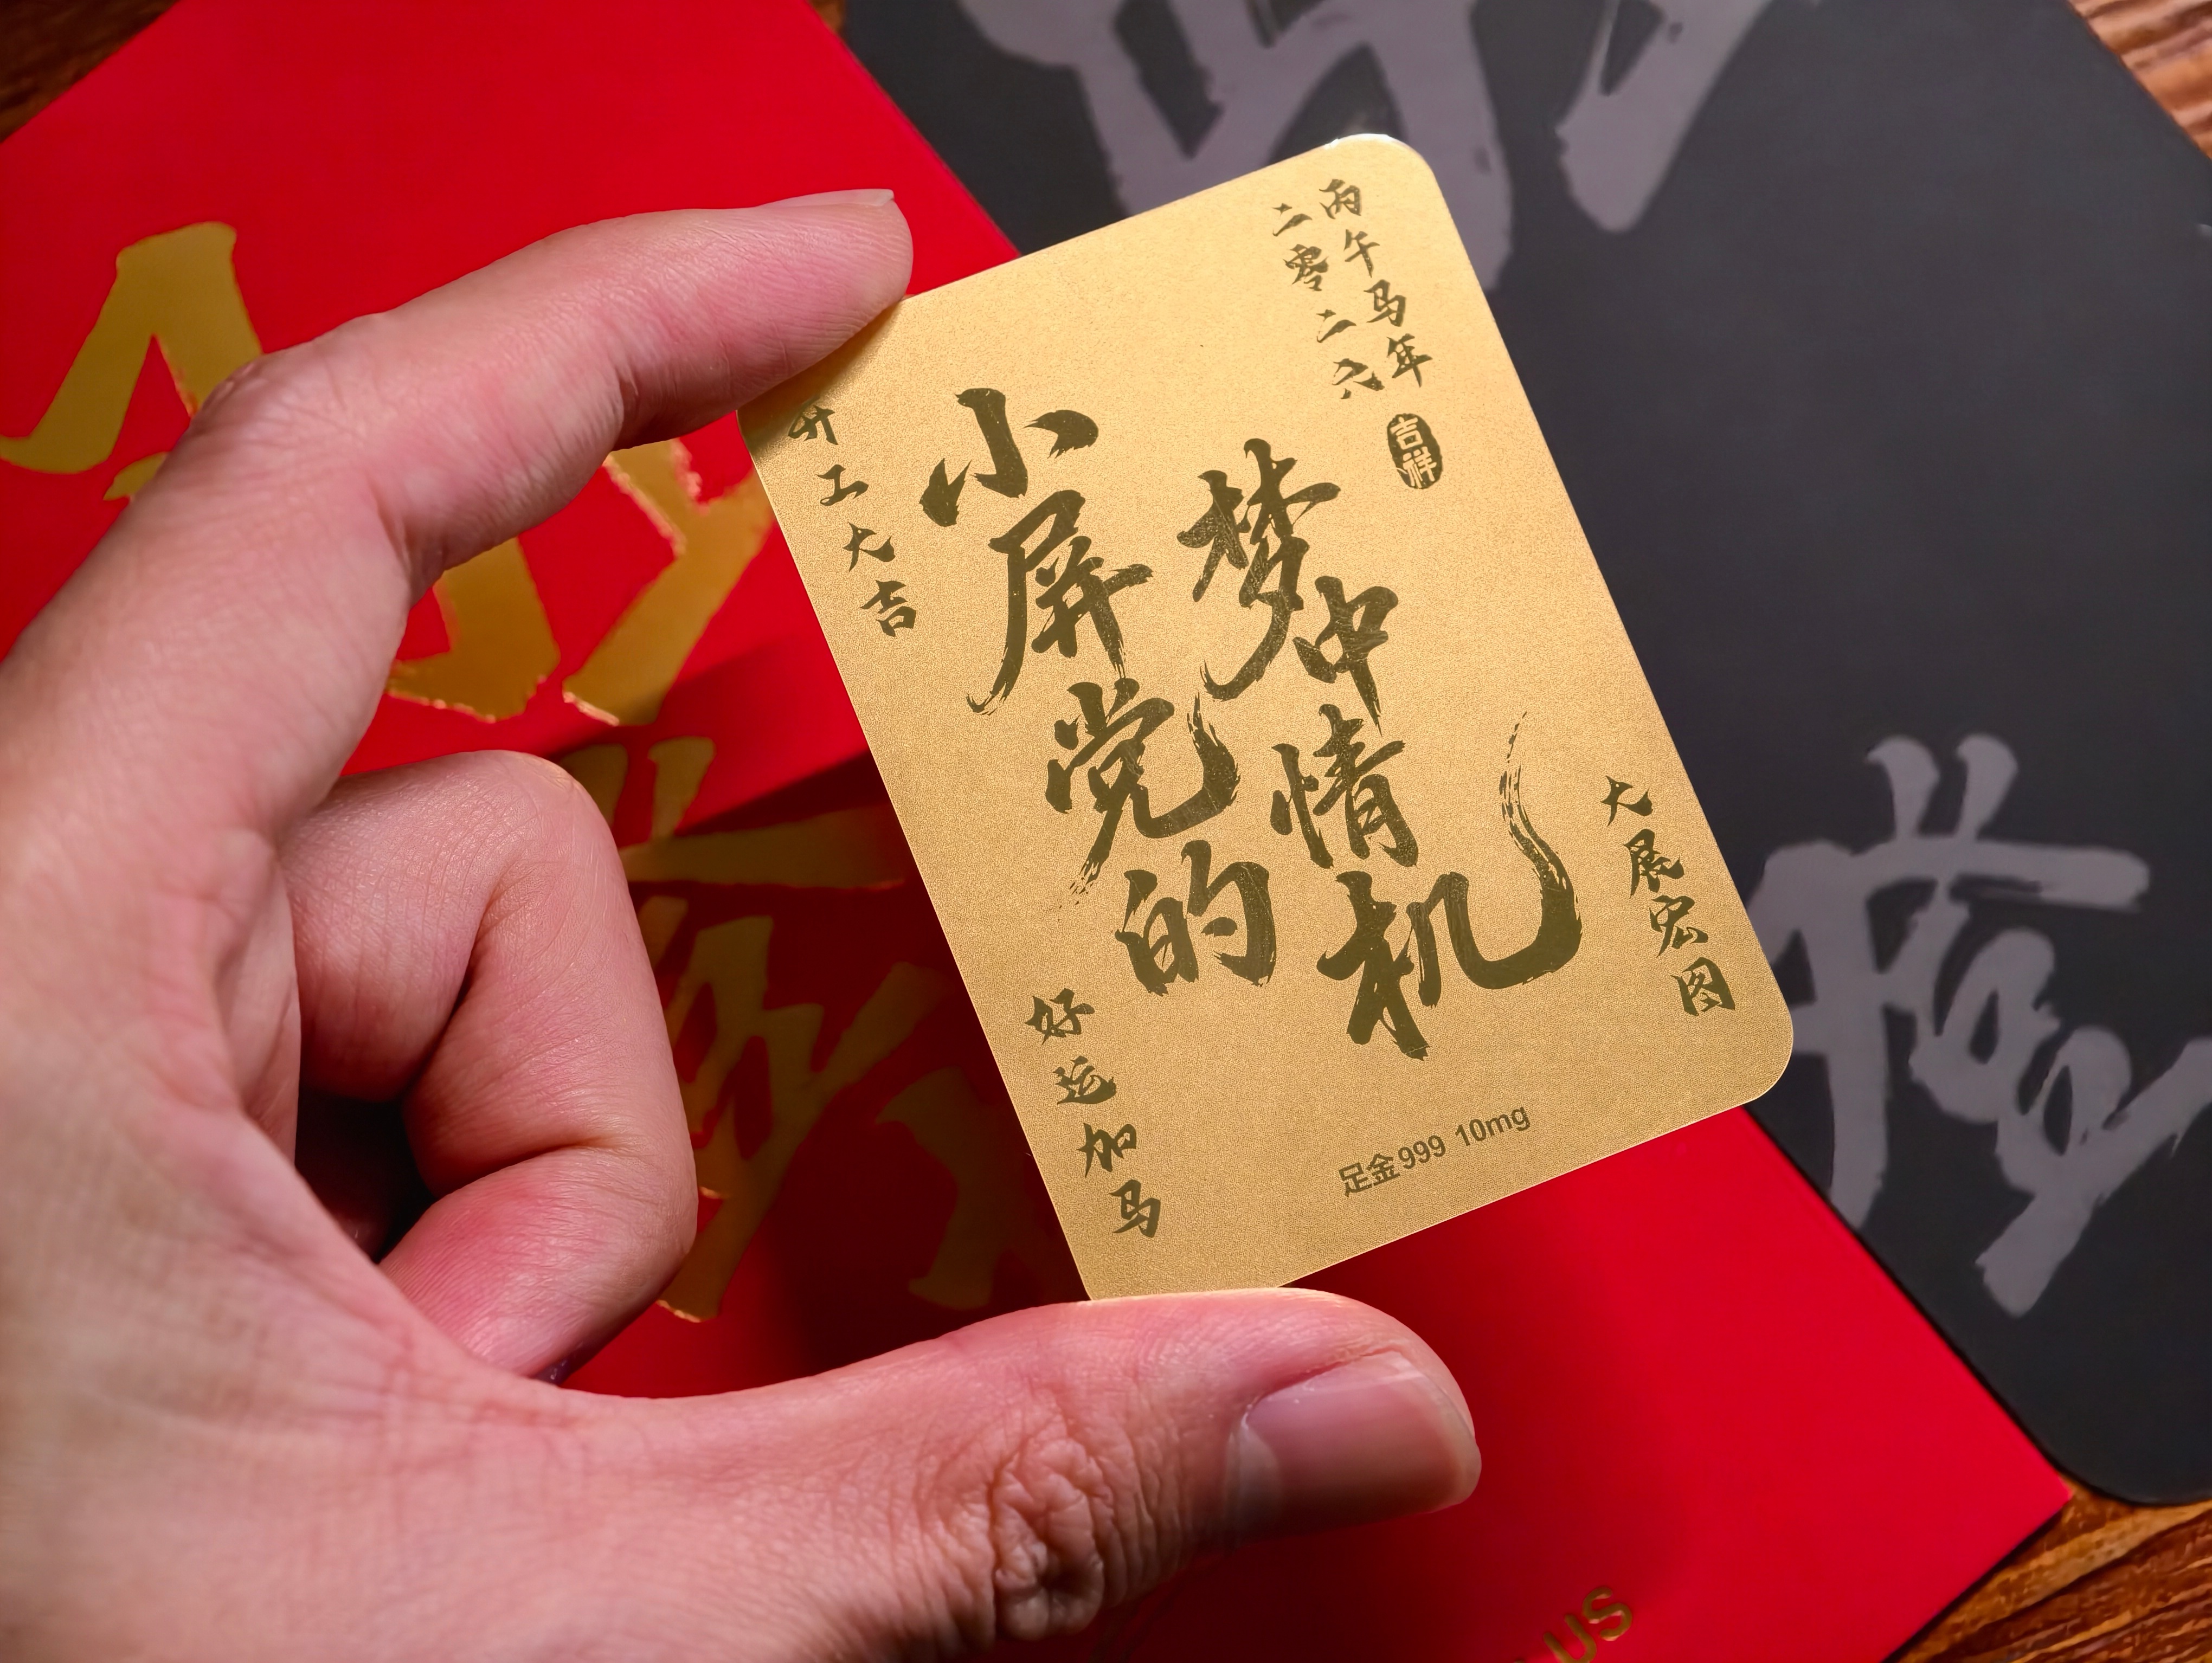 丙午马年
二零二六
吉祥
开工大吉
小屏党的
梦中情机
大展宏图
好运加马
足金999 10mg
US